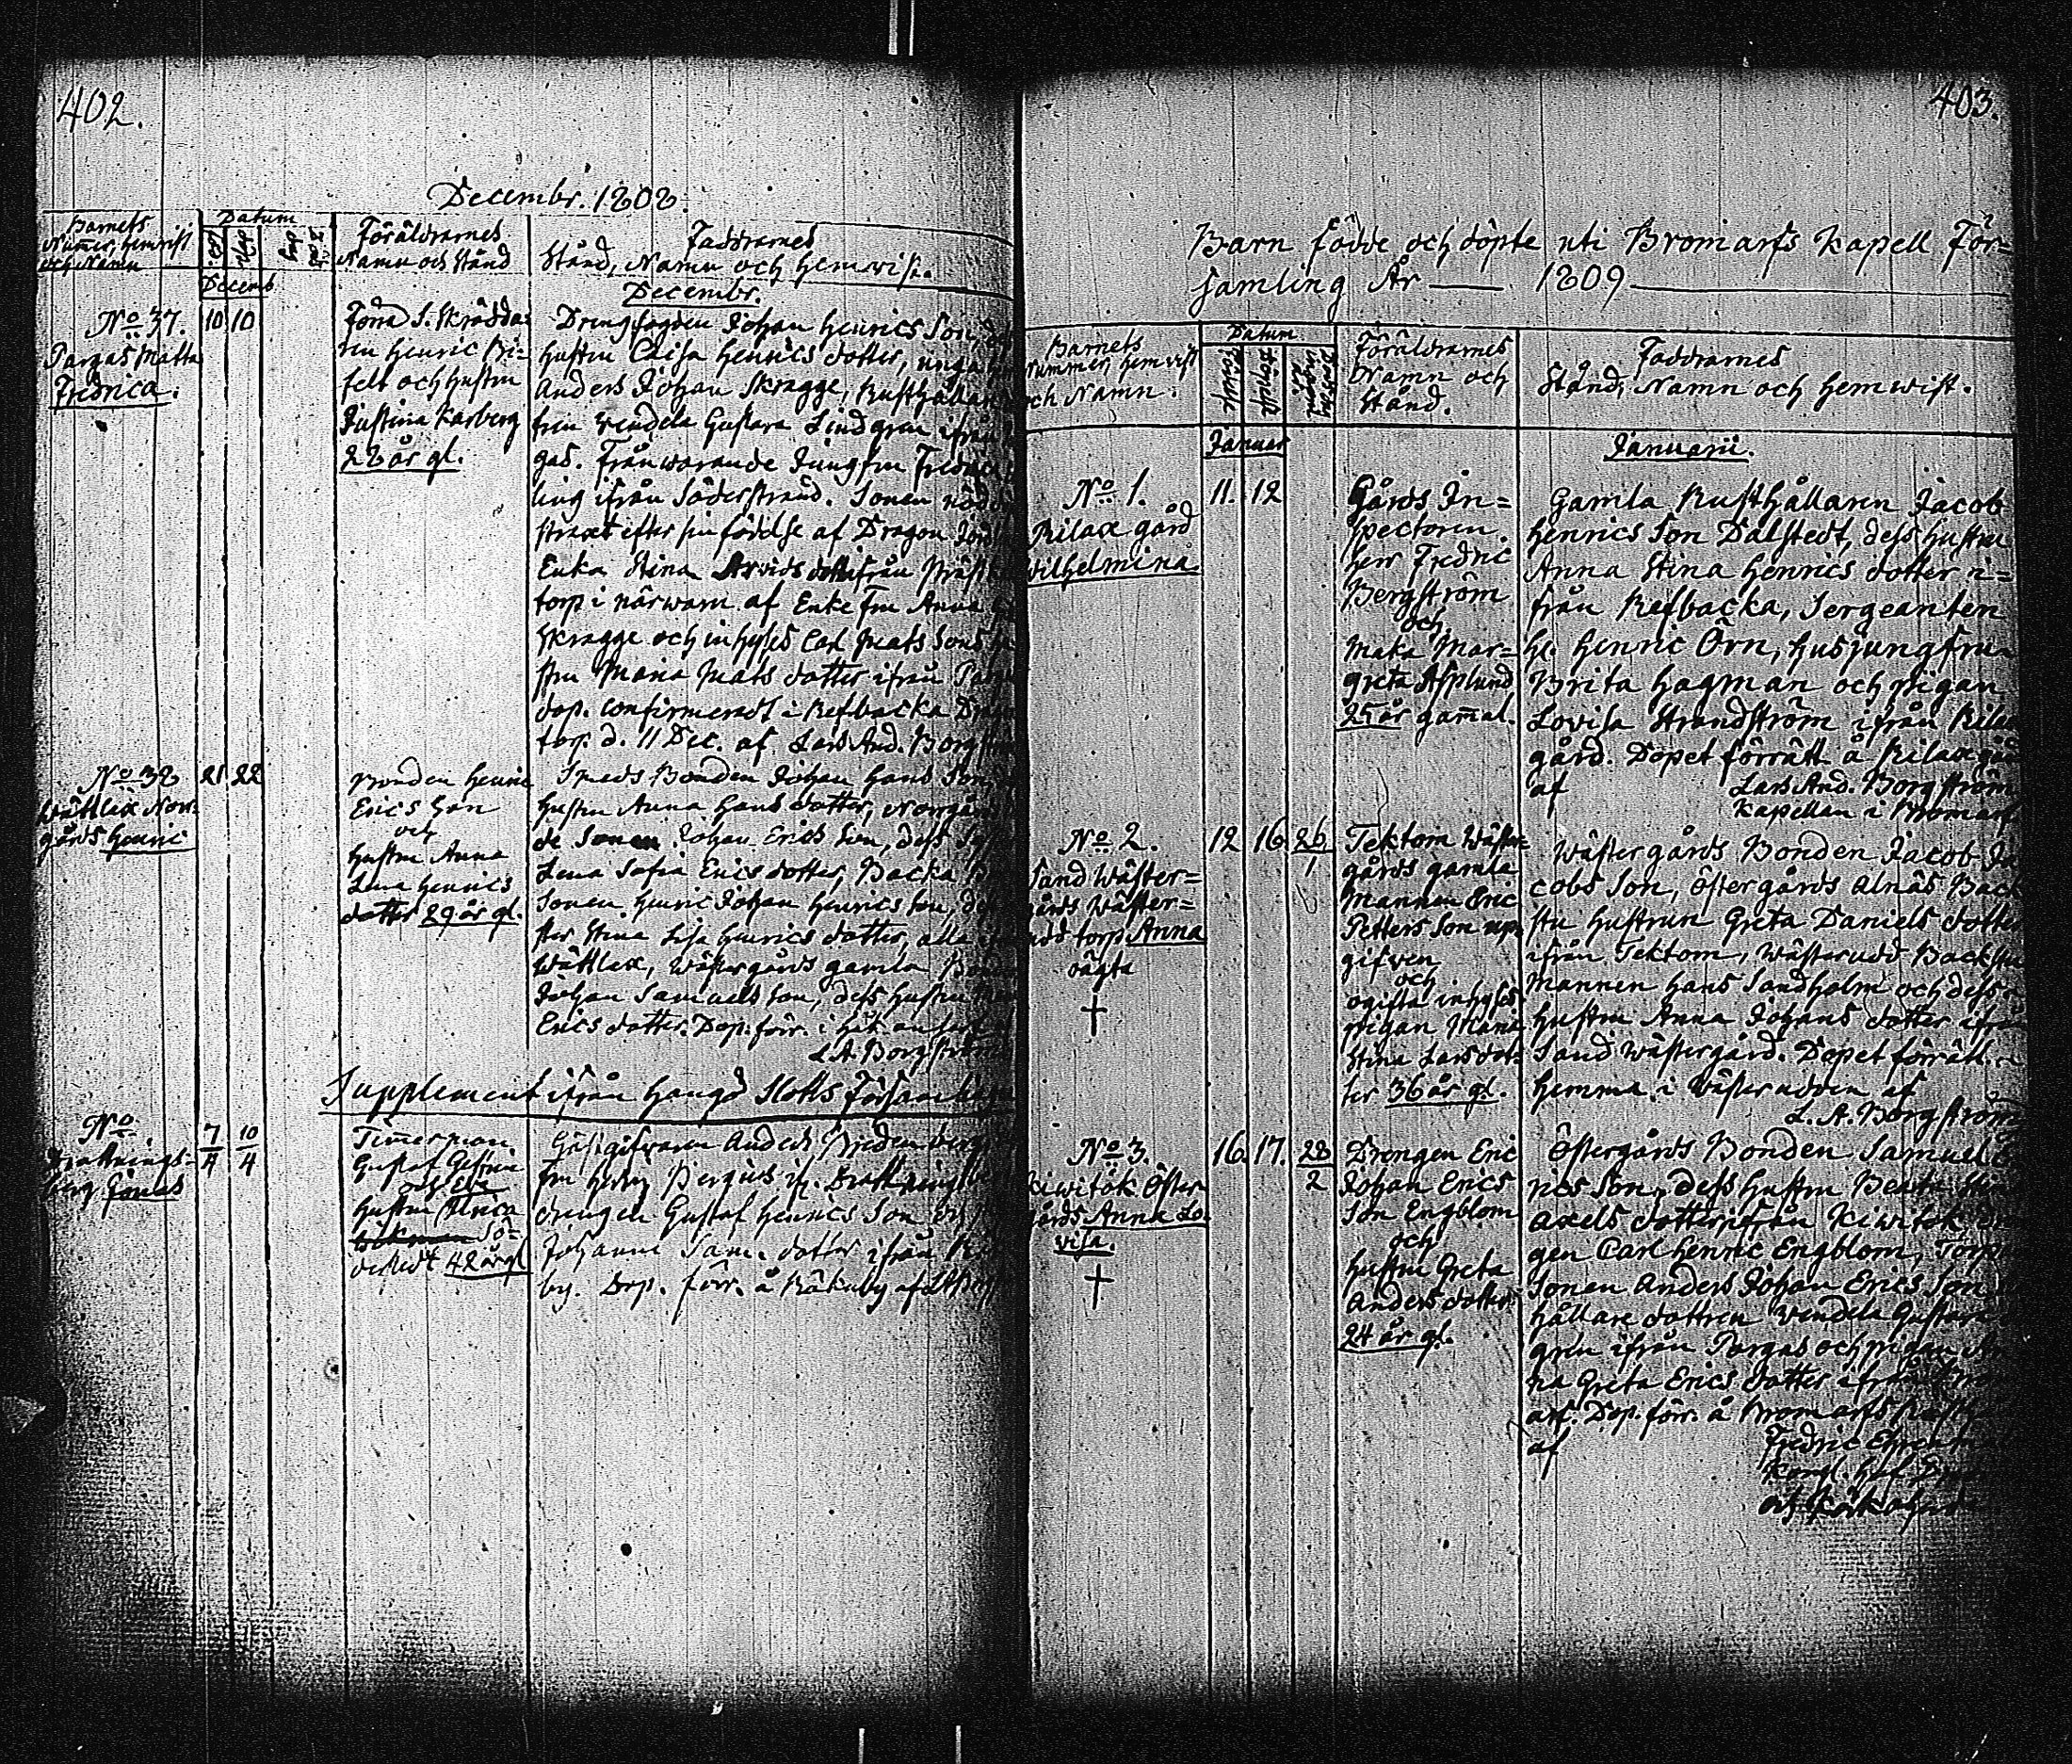 402.
Decembr. 1808.
Barnets
Nummer, hemvist
och Namn
Datum
Decemb.
Föräldrarnes
Namn och Stånd
Faddrarnes
Stånd, Namn och hemvist.
Decembr.
No 37.
Pargas Matta
Fredrica.
10 10
Förra S. Skrädda-
ren Henric Bi-
felt och hustru
Justina Karberg
28 år gl.
Drengfogden Johan Henrics Son,
hustru Caisa Henrics dotter, unga
Anders Johan Skragge, Rusthållar
fren Wendela Gustava Lindgren ifrån
gas. Frånwarande Jungfru Fredrica
ling ifrån Söderstrand. Sonen nöd
straxt efter sin födelse af Dragon
Enka Stina Arvids dotter ifrån
torp i närwaro af Enke Fru Anna
Skragge och inhyses Carl Mats Sons
stru Maria Mats dotter ifrån
dop. confirmeradt i Refbacka
torp d. 11 Dec. af Lars And. Borgström
No 38
Wättlax Nor-
gårds Henric
21 22
Bonden Henric
Erics Son
och
hustru Anna
Lena Henrics
dotter 29 år gl.
Smeds Bonden Johan Hans Son,
hustru Anna Hans dotter, Norgårds
de Sonen Johan Erics Son, dess
Lena Sofia Erics dotter, Backa
Sonen Henric Johan Henrics Son,
ster Stina Lisa Henrics dotter, alla
Wättlax, Wästergårds gamla
Johan Samuels Son, dess hustru
Erics dotter. Dop. förr. i
L. A. Borgström
Supplement ifrån Hangö Slotts Församling
No
Drottnings-
berg Jonas
7/4 10/4
Timmerman
Gustaf
och
hustru Ulrica
Sö-
42 år gl
Gästgifwaren Anders
fru Hedvig
drengen Gustaf Henrics Son och
Johanna Sam. dotter ifrån
by. Dop. förr. å Räkuby af
403.
Barn födde och döpte uti Bromarfs Kapell För-
samling År 1809
Barnets
Nummer, hemvist
och Namn.
Datum
Föräldrarnes
Namn och
Stånd.
Faddrarnes
Stånd, Namn och hemvist.
Januar
Januarii.
No 1.
Rilax gård
Wilhelmina.
11. 12
Gårds In-
spectoren
Herr Fredric
Bergström
och
Maka Mar-
greta Asplund
25 år gam̄al.
Gamla Rusthållaren Jacob
Henrics Son Dalstedt, dess hustru
Anna Stina Henrics dotter i-
från Refbacka, Sergeanten
Hr. Henric Örn, husjungfrun
Brita Hagman och pigan
Lovisa Strandström ifrån Rilax
gård. Dopet förrätt. å Rilax gård
af Lars And. Borgström
Kapellan i Bromarf
No 2.
Sand Wäster-
gårds Wäster-
udd torp Anna
oägta
†
12 16. 26/1
Tektom Wäster-
gårds gamla
Mannen Eric
Petters Son upp-
gifwen
och
ogifta inhyses
pigan Maria
Stina Larsdot-
ter 36 år gl.
Wästergårds Bonden Jacob Ja-
cobs Son, Östergårds Alnäs Back
stu hustrun Greta Daniels dotter
ifrån Tektom, Wästerudd Backstu
Mannen Hans Sandholm och dess
hustru Anna Johans dotter ifrån
Sand Wästergård. Dopet förrätt.
hemma i Wästerudden af
L. A. Borgström
No 3.
Kiwitok Öster
gårds Anna Lo-
visa.
†
16. 17. 28/2
Drengen Eric
Johan Erics
Son Engblom
och
hustru Greta
Anders dotter
24 år gl.
Östergårds Bonden Samuel E-
rics Son, dess hustru Beata Stina
Axels dotter ifrån Kiwitok Dren
gen Carl Henric Engblom, Torp
Sonen Anders Johan Erics Son
hållare dottren Wendela Gustava
gren ifrån Pargas och pigan An
na Greta Erics dotter ifrån Brom
arf. Dop. förr. å Bromarfs
af Fredric
Kongl. Hof
och